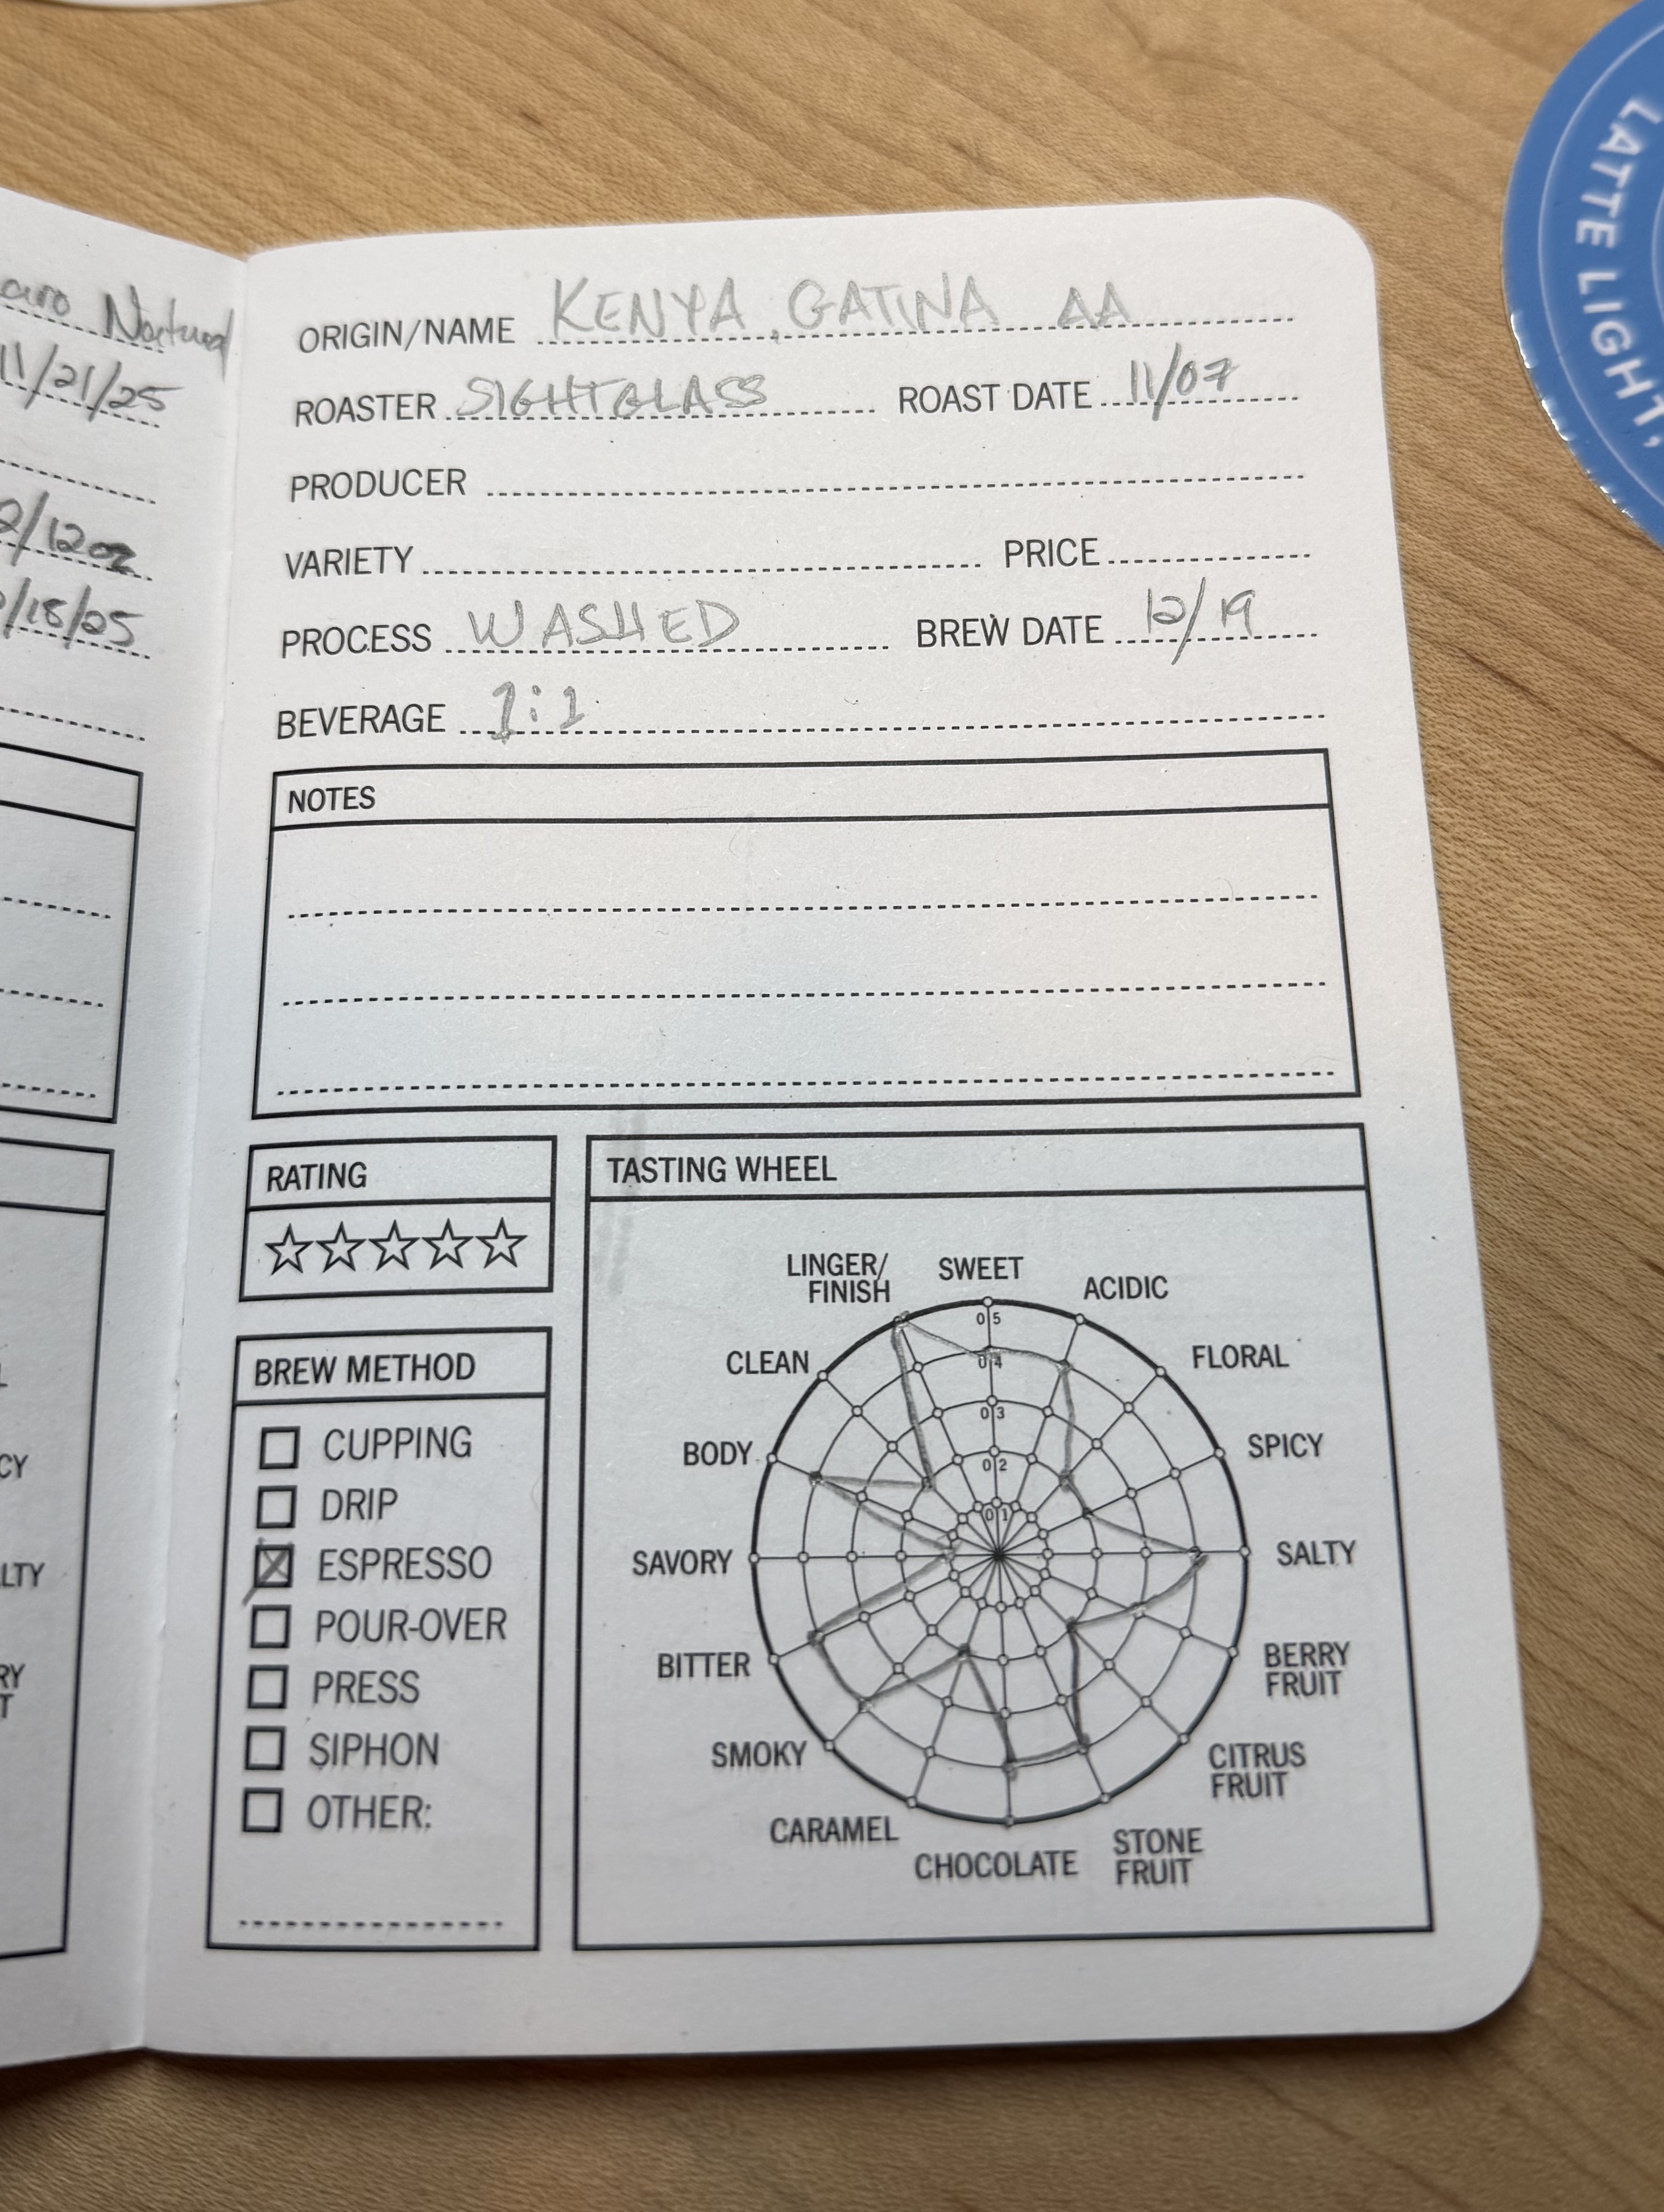 aro Natural
11/21/25
2/12oz
/18/25
CY
LTY
RY
T
ORIGIN/NAME KENYA, GATINA AA
ROASTER SIGHTGLASS ROAST DATE 11/07
PRODUCER
VARIETY PRICE
PROCESS WASHED BREW DATE 12/19
BEVERAGE 1:1
NOTES
RATING
BREW METHOD
CUPPING
DRIP
ESPRESSO
POUR-OVER
PRESS
SIPHON
OTHER:
TASTING WHEEL
LINGER/
FINISH
SWEET
ACIDIC
CLEAN
FLORAL
BODY
SPICY
SAVORY
SALTY
BITTER
BERRY
FRUIT
SMOKY
CITRUS
FRUIT
CARAMEL
CHOCOLATE
STONE
FRUIT
0 5
0 4
0 3
0 2
0 1
LATTE LIGHT,